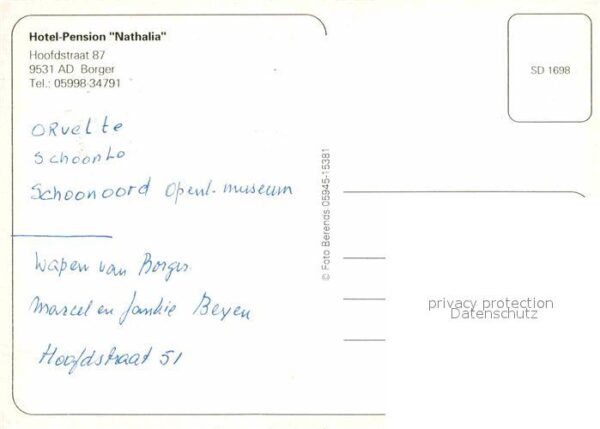 Hotel-Pension "Nathalia"
Hoofdstraat 87
9531 AD Borger
Tel.: 05998-34791
SD 1698
ORvelte
Schoonlo
Schoonoord Openl. museum
Wapen van Borger
Marcel en Jankie Beyen
Hoofdstraat 51
© Foto Berends 05945-15381
privacy protection
Datenschutz